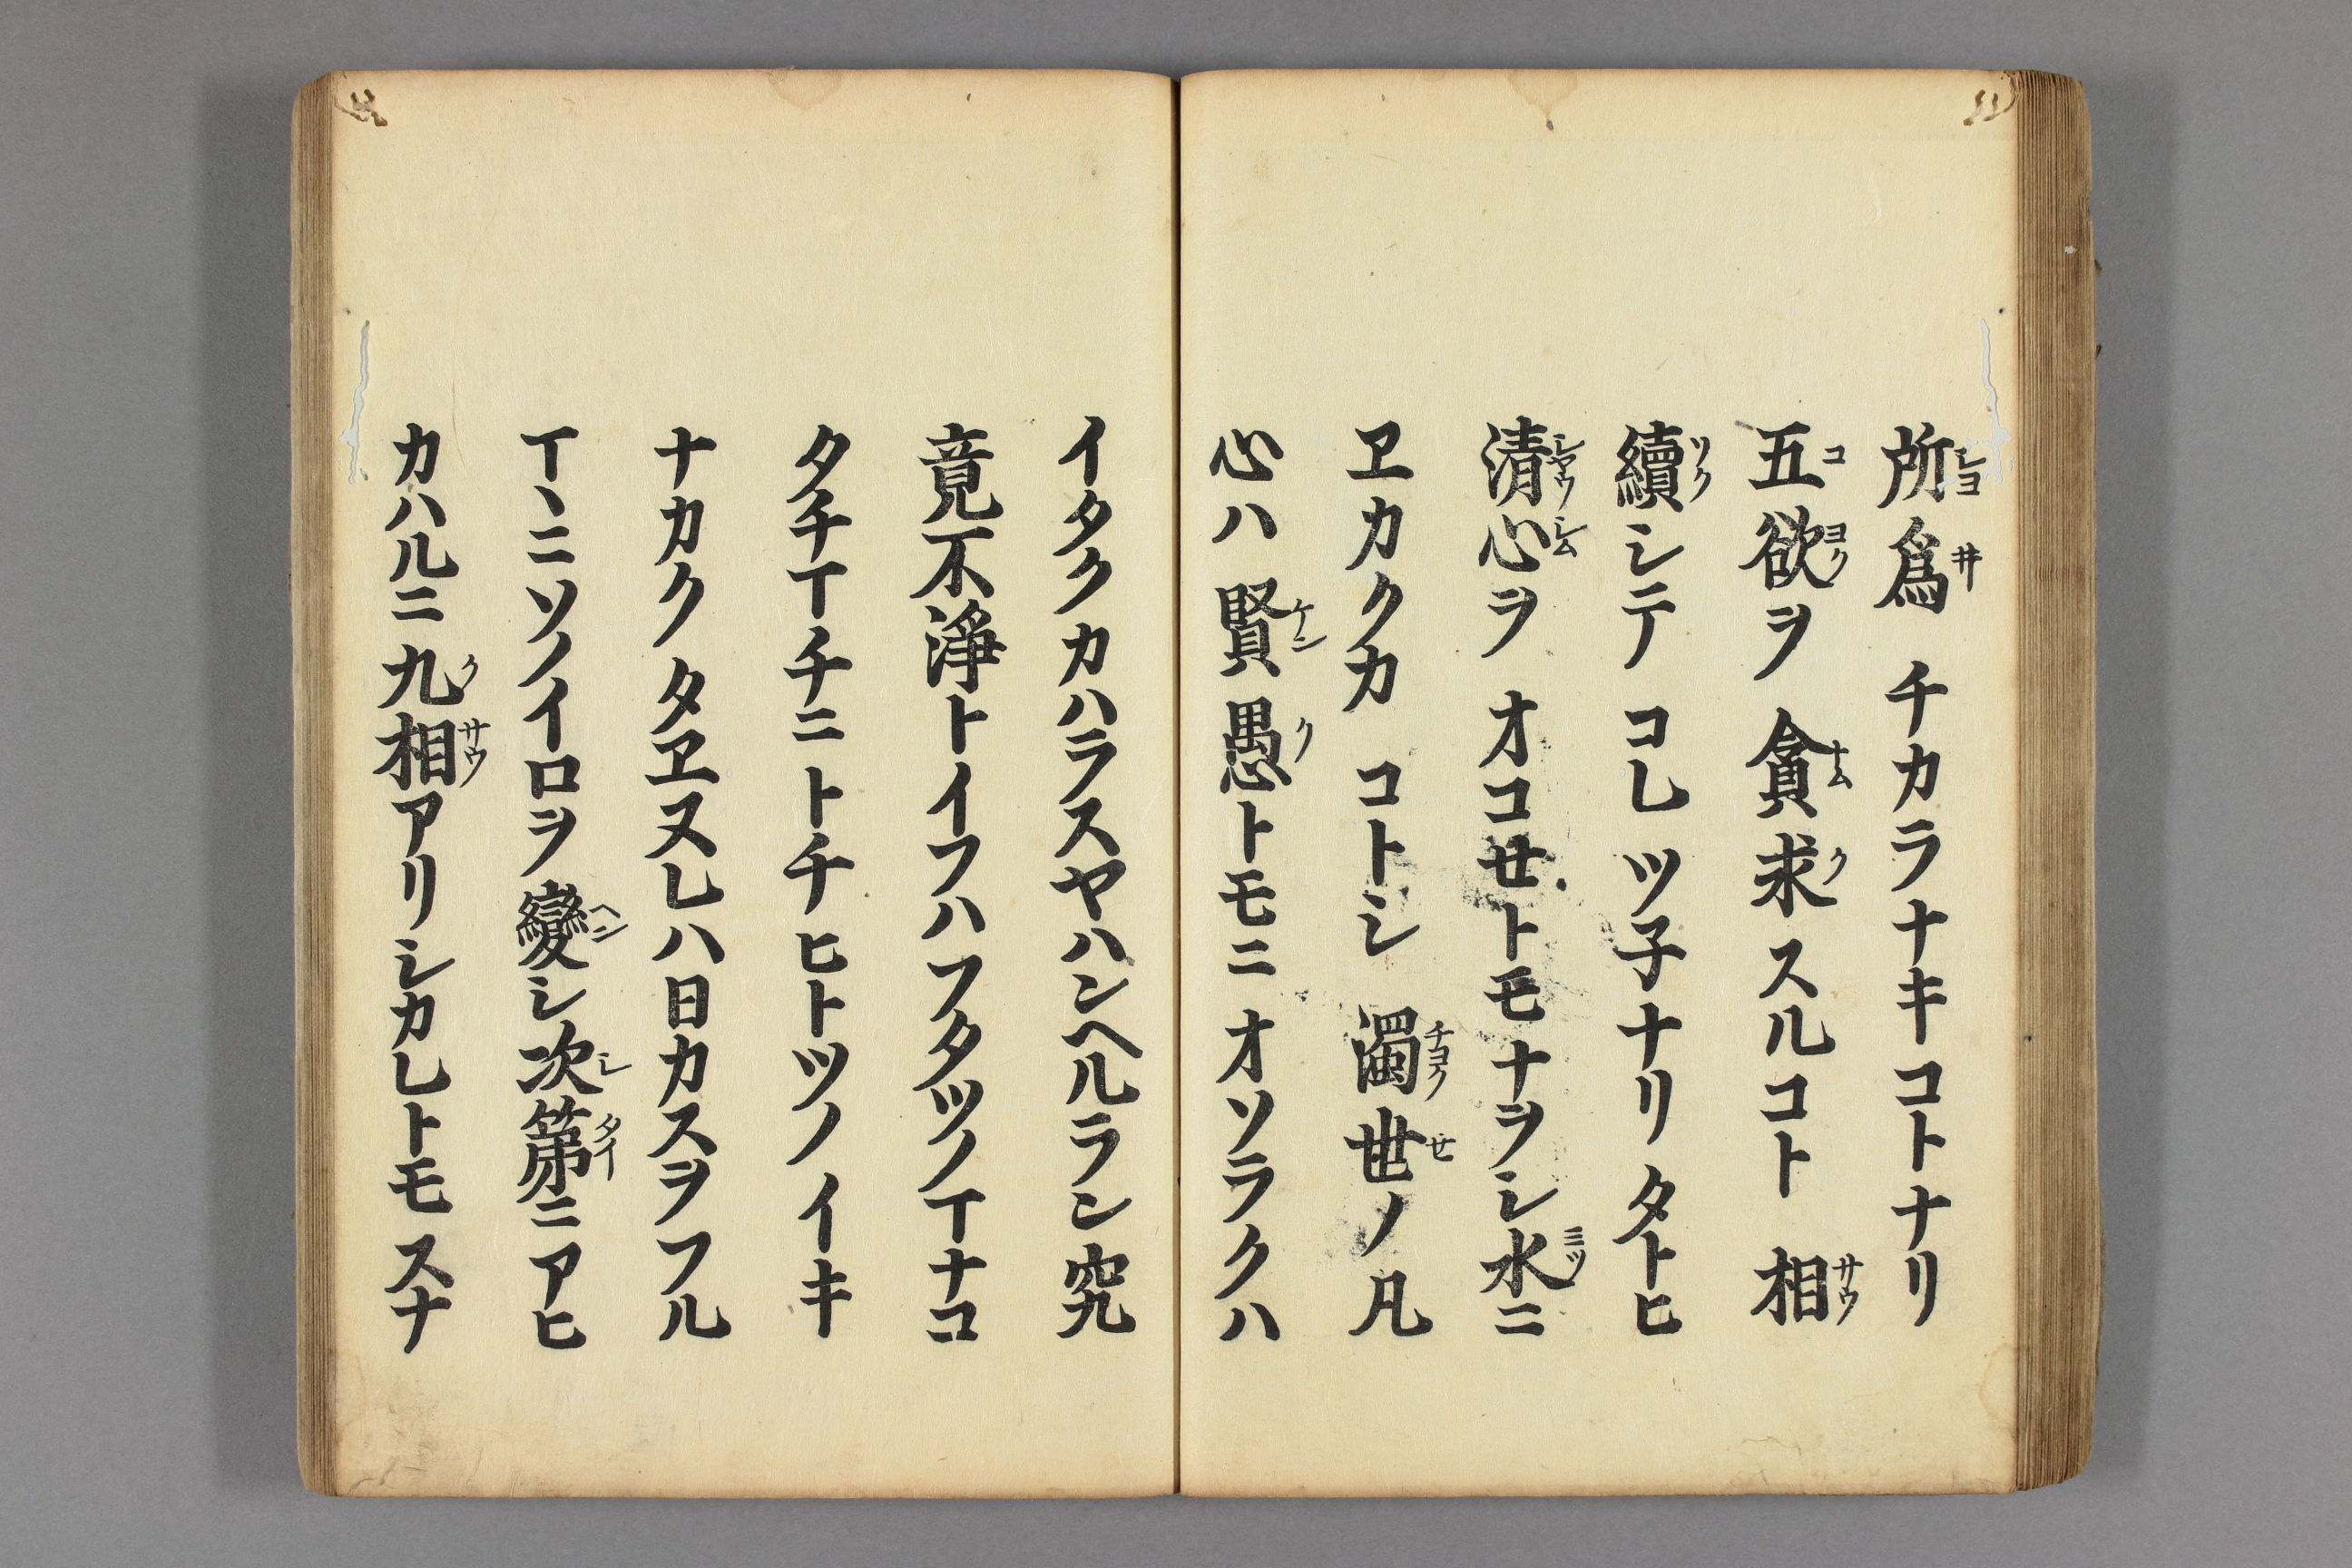 所爲チカラナキコトナリ
五欲ヲ貪求スルコト相
續シテコレツ子ナリタトヒ
清心ヲオコセトモナヲシ水ニ
ヱカクカコトシ濁世ノ凡
心ハ賢愚トモニオソラクハ
イタクカハラスヤハンヘルラン究
竟不淨トイフハフタツノヿナコ
タチヿチニトチヒトツノイキ
ナカクタヱヌレハ日カスヲフル
ヿヽニソノイロヲ變シ次第ニアヒ
カハルニ九相アリシカレトモスナ